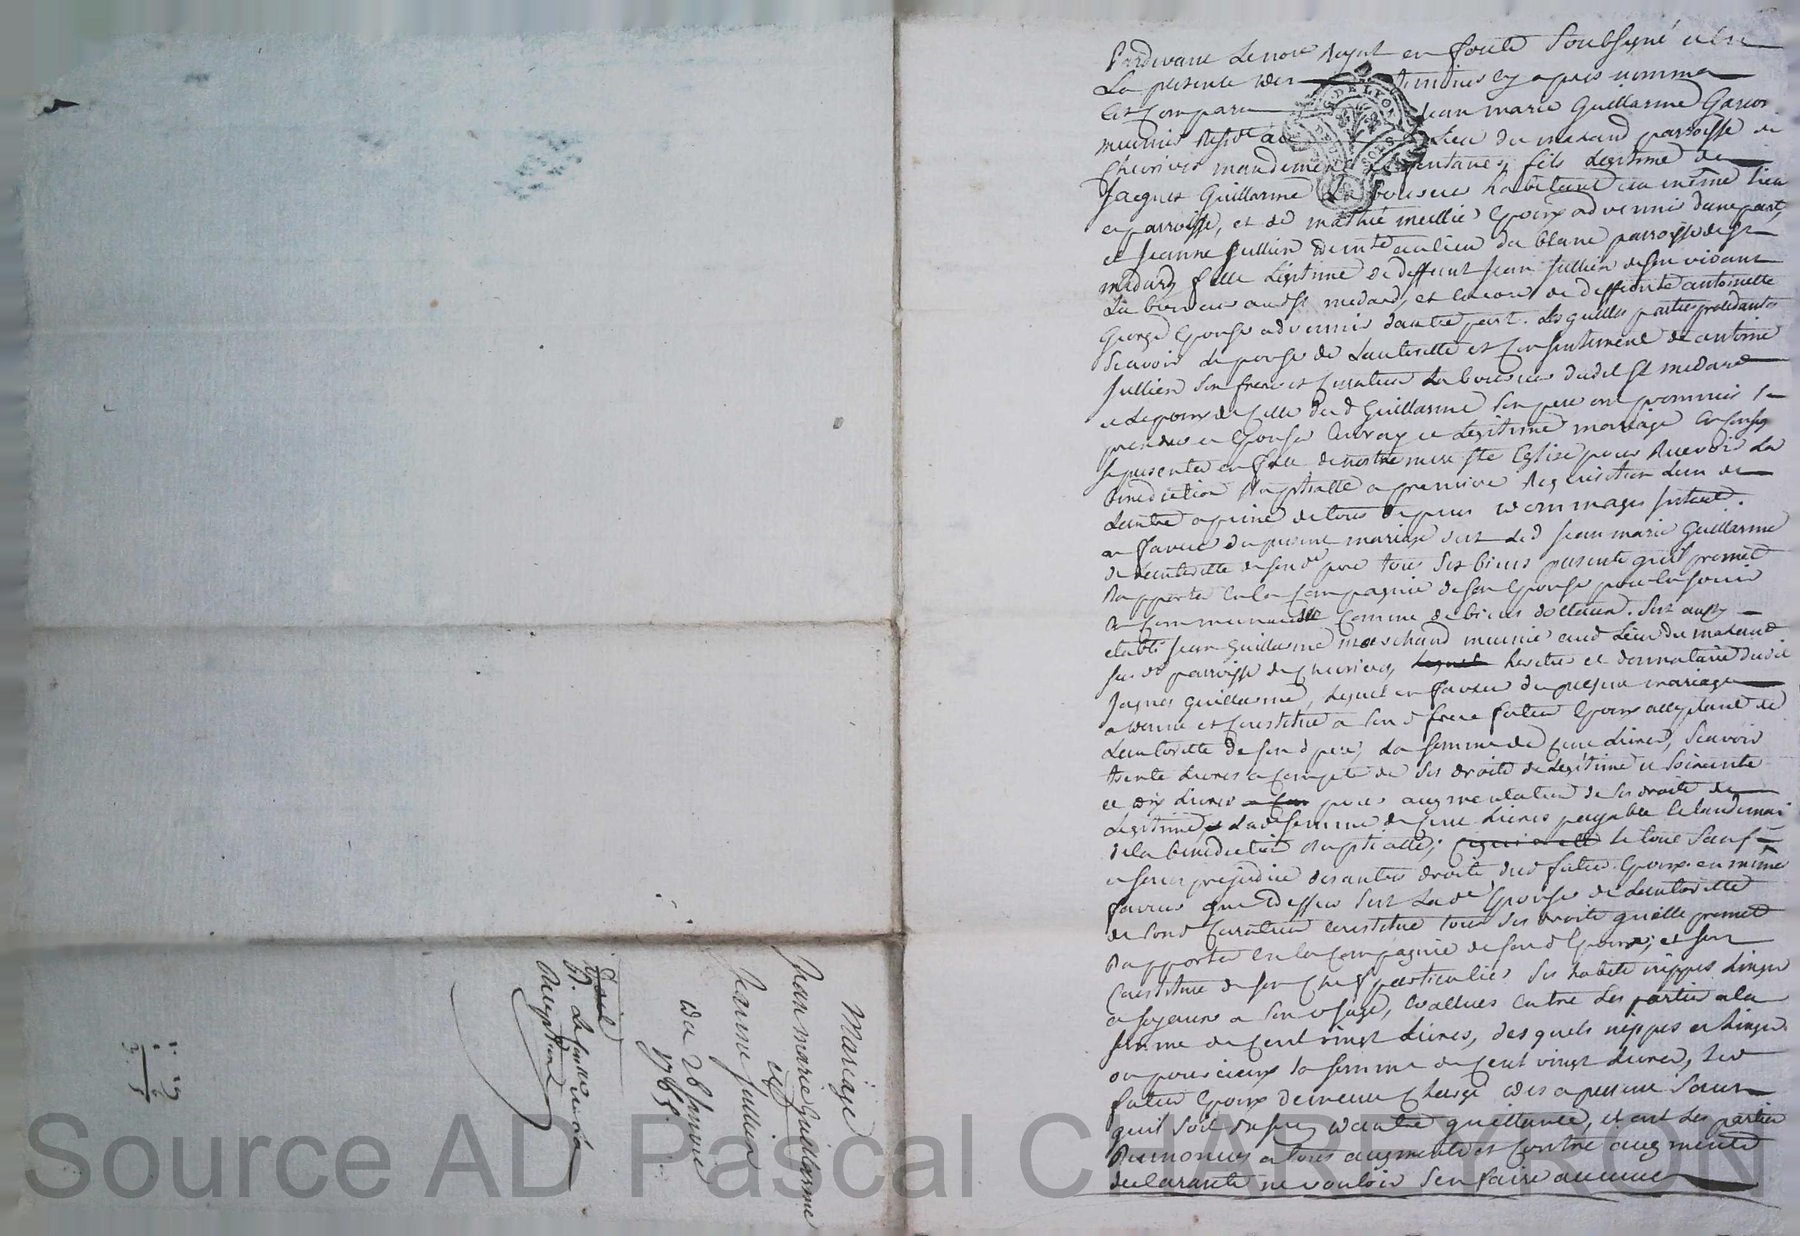 Pardevant Le nore Royal en forèts Soubsigné et en
La presente des temoins cy apres nommes
est Comparu Jean marie Guillarme Garcon
meunier Resdt au Lieu du maraud parroisse de
Chevrieres mandement de fontanes, fils Legitime de
Jacques Guillarme Laboureur habitant au même lieu
et parroisse, et de mathie meillier Epoux advennir dune part,
et Jeanne Jullien demte au lieu du blanc parroisse de St
medard fille Legitime de deffunt Jean Jullien de son vivant
Laboureur aud St medard, et encore de deffunte antoinette
George Epouse advennir dautre part. Lesquelles parties procedantes
Scavoir Lepouse de Lauthorité et Consentement de antoine
Jullien Son frere et Curateur Laboureur dudit St medard
et Lepoux de Celle dud Guillarme Son pere ont prommis se
prendre en Epouse en vray et Legitime mariage
Se presenter en face de nostre mere Ste Eglise pour Recevoir La
benediction Nuptialle a premiere Requisition Lun de
Lautre a peine de tous depens dommages Interet.
en faveur du present mariage sest Led Jean marie Guillarme
de Lauthorité de sond pere tous ses biens presents quil promet
Rapporter en la Compagnie de son Epouse
Comme de biens dotteaux. Sest aussy
etabli Jean Guillarme marchand meunier aud Lieu du maraud
susd parroisse de Chevrieres, heritier et donnataire dudit
Jacques Guillarme, Lequel en faveur du present mariage
a donné et Constitué a Sond frere futur Epoux acceptant de
Lauthorité de sond pere, La somme de Cent Livres, Scavoir
trente Livres a Compte de Ses droits de Legitime et Soixante
et dix Livres pour augmentation de Ses droits de
Legitime, Lade Somme de Cent Livres payable le landemain
de la benediction Nuptialle, le tout Sauf
et sans prejudice des autres droits dud futur Epoux. en même
faveur que dessus Sest Lade Epouse de Lauthorité
de Sond Curateur Constitué tous Ses droits quelle promet
Rapporter en la Compagnie de Sond Epoux, et Sest
Constitué de Son Chef particulier Ses habits nippes Linges
a Son usage, evallués entre Les parties a la
Somme de Cent vingt Livres, desquels nippes et Linges
ou pour iceux la Somme de Cent vingt Livres, Led
futur Epoux demeure Chargé des a present Sans
quil soit besoin dautre quittance, et ont Les parties
Renoncé a tous augments et Contre augments
declarants ne vouloir Sen faire aucuns
Mariage
Jean marie Guillarme
et
Jeanne Jullien
Du 28 Janvier
1765.
Reception